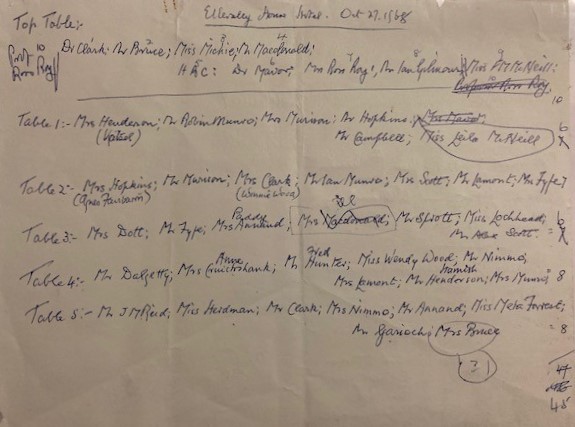 Ellersley House Hotel. Oct 27. 1968
Top Table:-
Dr Clark: Mr Bruce; Miss Michie; Mr Macdonald;
Prof Ross Roy 10
H & C: Dr Mavor; Mrs Ross Roy; Mr Ian Gilmour; Miss F M McNeill;
10
Table 1:- Mrs Henderson; Mr Robin Munro; Mrs Murison: Mr Hopkins.
Mr Campbell; Miss Leila McNeill
Table 2:- Mrs Hopkins; Mr Murison; Mrs Clark; Mr Ian Munro; Mrs Scott; Mr Lamont; Mrs Fyfe 7
(Agnes Fairbairn) (Winnie Ward)
Table 3:- Mrs Dott; Mr Fyfe; Mrs Annand; Mrs Macdonald; Mr Sprott; Miss Lochhead;
Mr Scott
Table 4:- Mr Dalgetty; Mrs Cruickshank; Mr Hunter; Miss Wendy Wood; Mr Nimmo;
Anne Hamish
Mrs Lamont; Mr Henderson; Mrs Munro = 8
Table 5:- Mr J M Reid; Miss Heidman; Mr Clark; Mrs Nimmo; Mr Annand; Miss Meta Forrest;
Mr Garioch; Mrs Bruce = 8
47
45